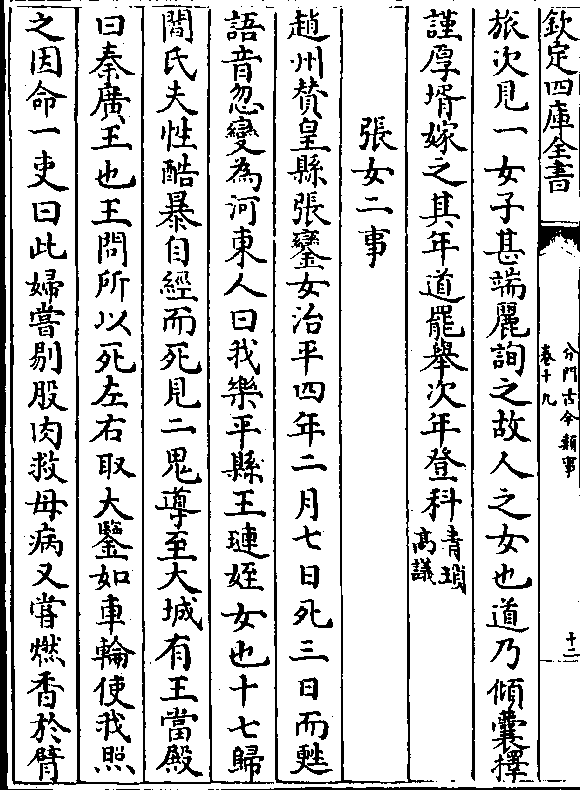 欽定四庫全書
分門古今類事
卷十九
十二
旅次見一女子甚端麗詢之故人之女也道乃傾囊擇
謹厚壻嫁之其年道罷舉次年登科青瑣
高議
張女二事
趙州贊皇縣張鑾女治平四年二月七日死三日而甦
語音忽變為河東人曰我樂平縣王璉姪女也十七歸
閻氏夫性酷暴自經而死見二鬼導至大城有王當殿
曰秦廣王也王問所以死左右取大鑒如車輪使我照
之因命一吏曰此婦嘗剔股肉救母病又嘗燃香於臂